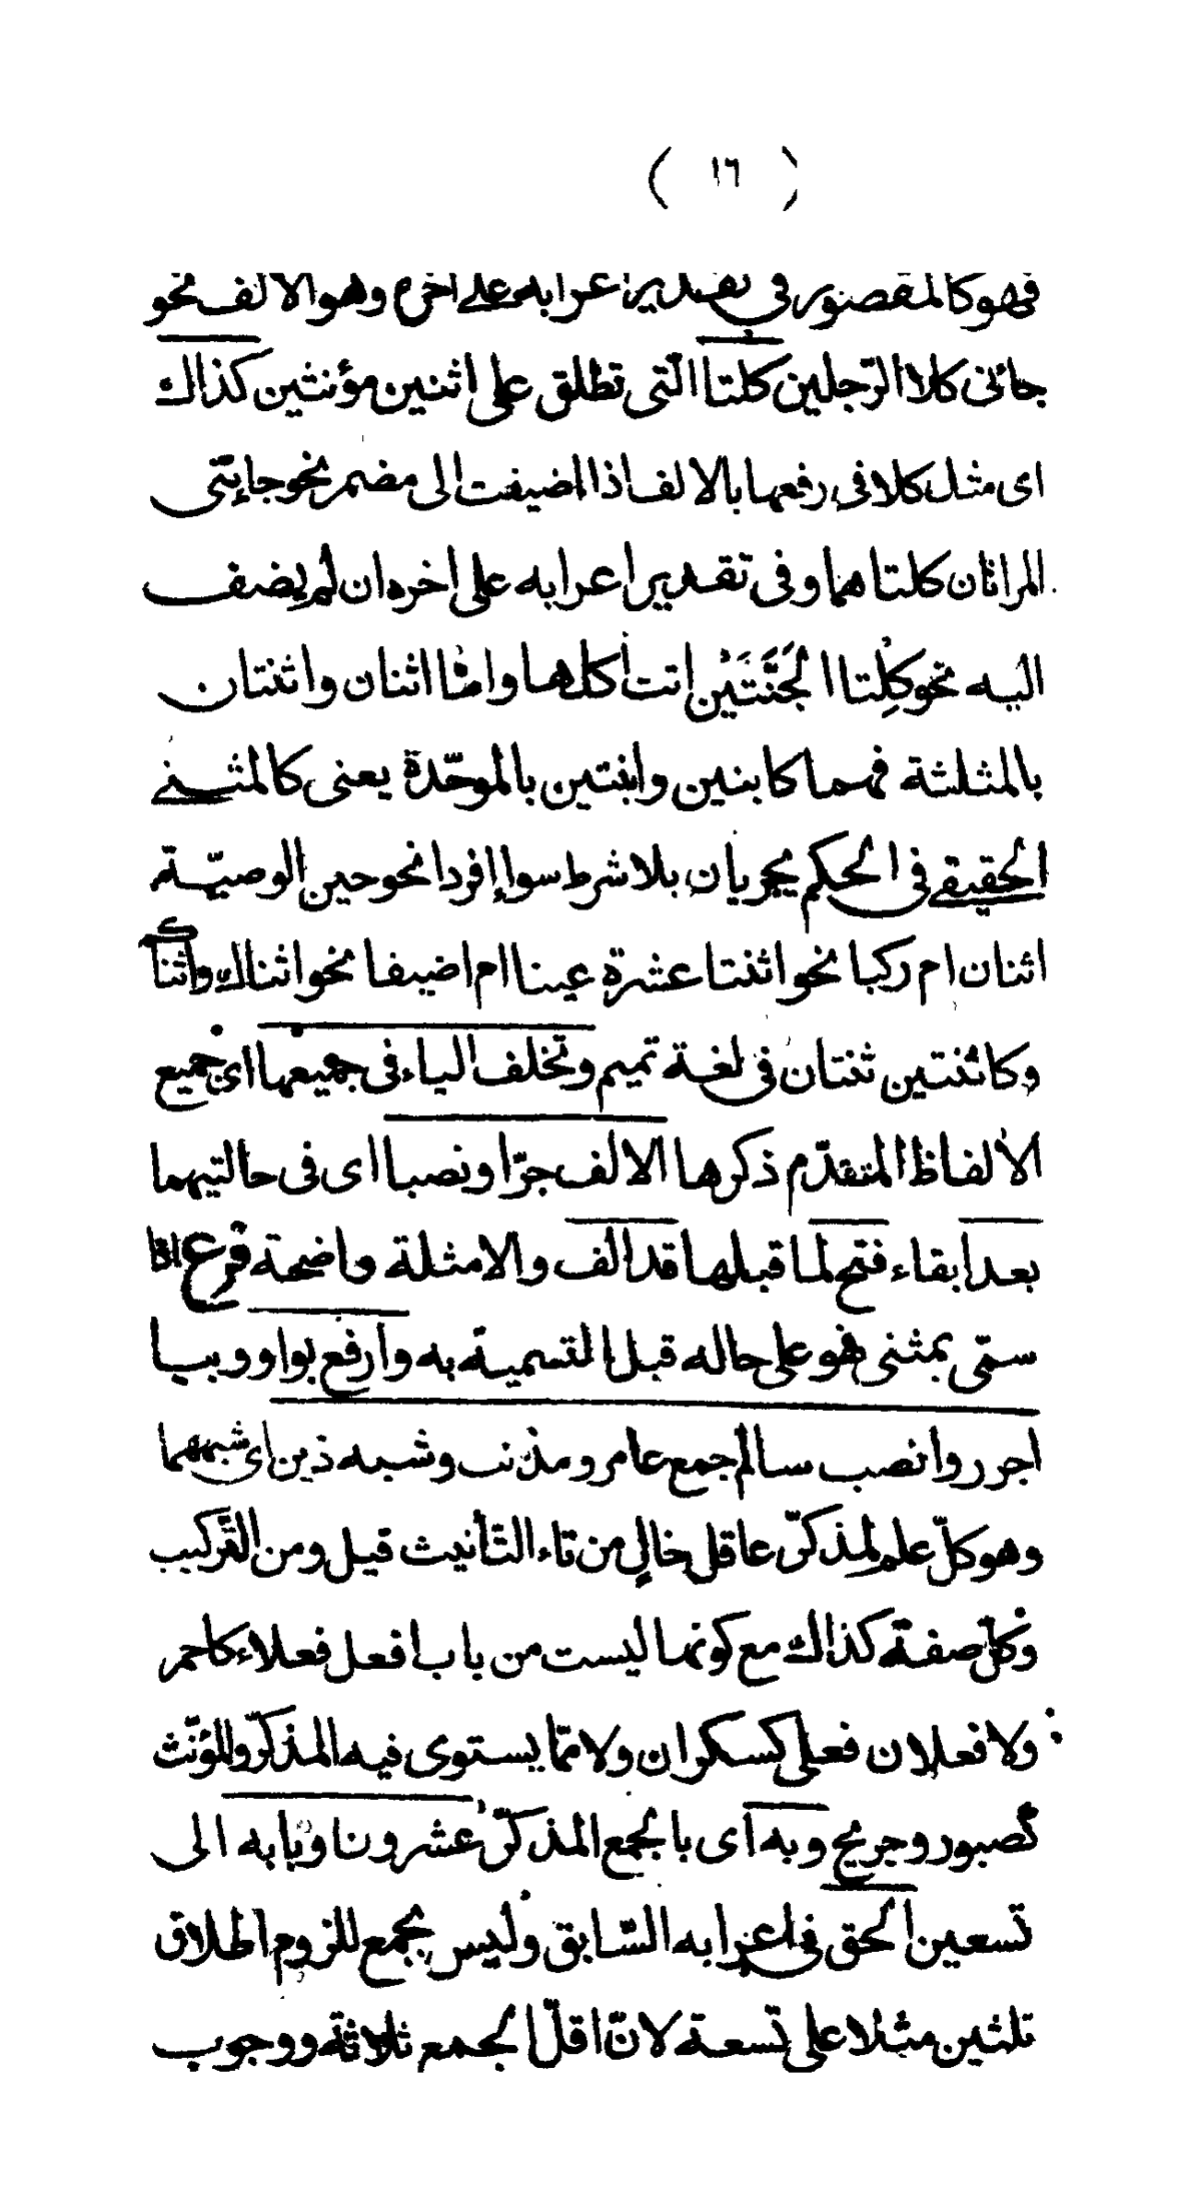 ( ١٦ )
فهو كالمقصور فى تقدير اعرابه على اخره وهو الالف نحو
جائنى كلا الرّجلين كلتا الّتى تطلق على اثنين مؤنثين كذاك
اى مثل كلا فى رفعها بالالف اذا اضيفت الى مضمر نحو جائتنى
المراتان كلتاهما وفى تقدير اعرابه على اخره ان لم يضف
اليه نحو كِلتا الجَنَّتَيْن اتت اُكلها وامّا اثنان واثنتان
بالمثلثة فهما كابنين وابنتين بالموحّدة يعنى كالمثنى
الحقيقى فى الحكم يجريان بلا شرط سواء افردا نحو حين الوصيّة
اثنان ام ركبا نحو اثنتا عشرة عينا ام اضيفا نحو اثناك واثناكم
وكاثنتين ثنتان فى لغة تميم وتخلف الياء فى جميعها اى جميع
الالفاظ المتقدّم ذكرها الالف جرّا ونصبا اى فى حالتيهما
بعد ابقاء فتح لما قبلها قد الف والامثلة واضحة فرع اذا
سمّى بمثنى فهو على حاله قبل التسمية به وارفع بواو وبيا
اجرر وانصب سالم جمع عامر ومذنب وشبه ذين اى شبههما
وهو كلّ علم لمذكّر عاقل خالٍ من تاء التّأنيث قيل ومن التّركيب
وكلّ صفة كذاك مع كونها ليست من باب افعل فعلاء كاحمر
ولا فعلان فعلى كسكران ولا ممّا يستوى فيه المذكّر والمؤنّث
كصبور وجريح وبه اى بالجمع المذكّر عشرونا وبابه الى
تسعين الحق فى اعرابه السّابق وليس بجمع للزوم اطلاق
ثلثين مثلا على تسعة لانّ اقلّ الجمع ثلاثة ووجوب